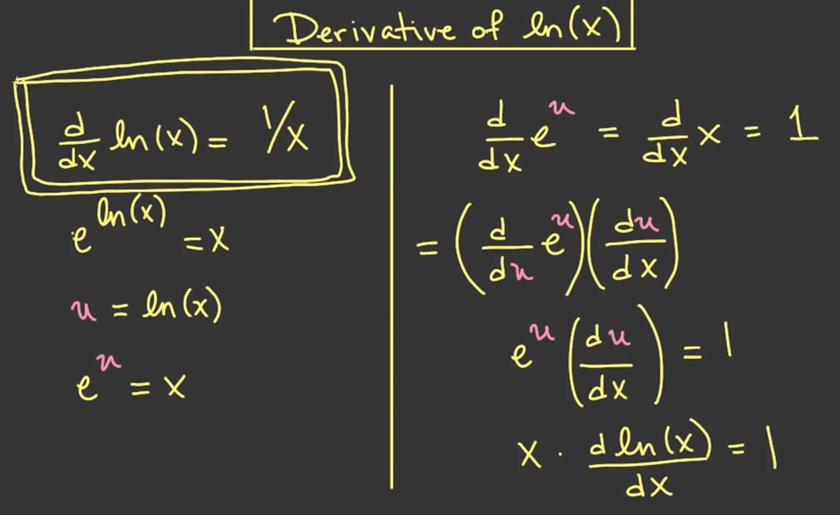 Derivative of ln(x)
d/dx ln(x) = 1/x
e^ln(x) = x
u = ln(x)
e^u = x
d/dx e^u = d/dx x = 1
= (d/du e^u)(du/dx)
e^u (du/dx) = 1
x · d ln(x)/dx = 1